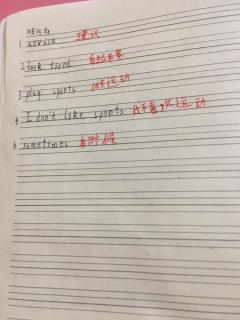 1. advice 建议
2. look tired 看起来累
3. play sports 做运动
4. I don't like sports 我不喜欢运动
5. sometimes 有时候